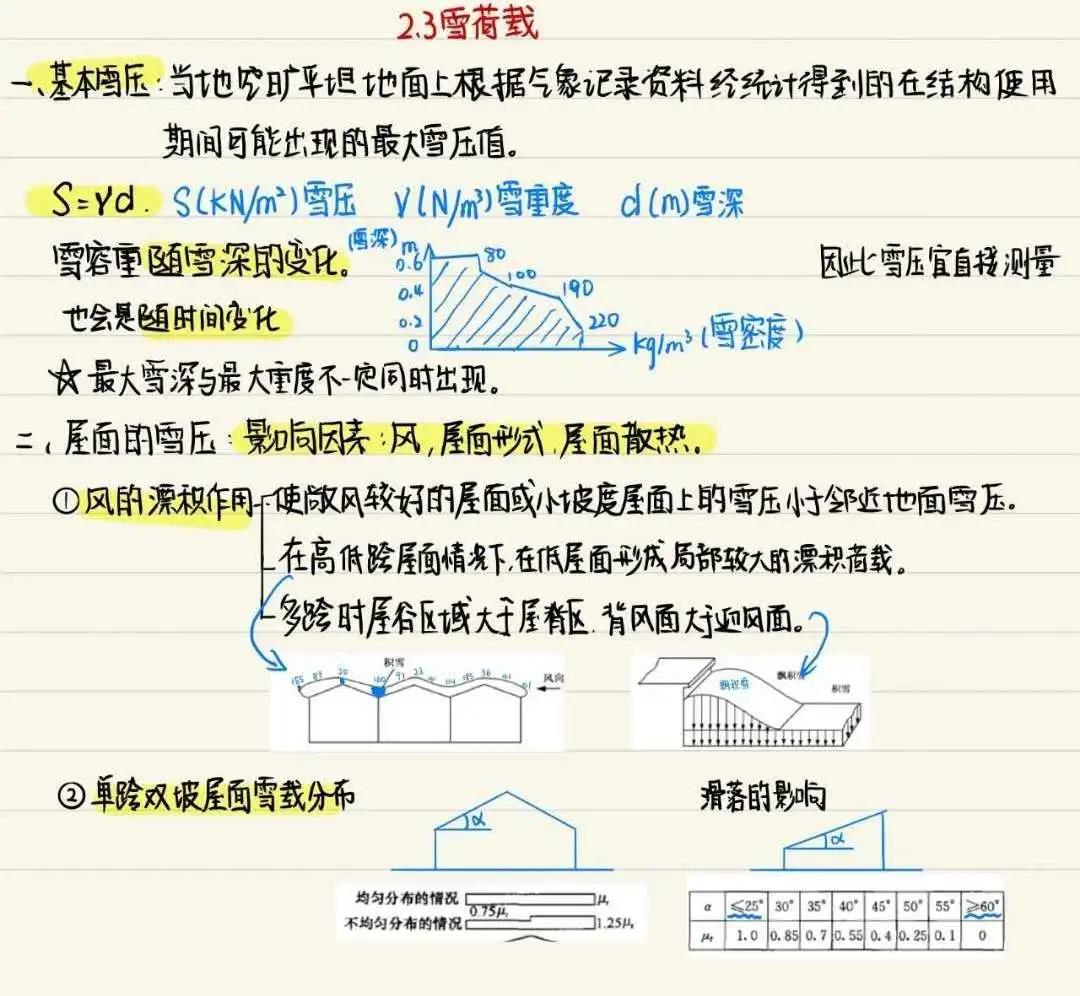 2.3雪荷载
一、基本雪压:当地空旷平坦地面上根据气象记录资料经统计得到的在结构使用
期间可能出现的最大雪压值。
S=γd. S(KN/m²)雪压 γ(N/m³)雪重度 d(m)雪深
雪容重随雪深的变化。
(雪深) m
0.6
0.4
0.2
0
80
100
190
220
kg/m³(雪密度)
因此雪压宜直接测量
也会是随时间变化
☆最大雪深与最大重度不一定同时出现。
二、屋面的雪压:影响因素:风,屋面形式,屋面散热。
①风的漂积作用
使散风较好的屋面或小坡度屋面上的雪压小于邻近地面雪压。
在高低跨屋面情况下,在低屋面形成局部较大的漂积荷载。
多跨时屋谷区域大于屋脊区.背风面大于迎风面。
积雪
风向
飘积雪
飘积雪
积雪
②单跨双坡屋面雪载分布
滑落的影响
α
α
均匀分布的情况 μr
0.75μr
不均匀分布的情况 1.25μr
α ≤25° 30° 35° 40° 45° 50° 55° ≥60°
μr 1.0 0.85 0.7 0.55 0.4 0.25 0.1 0